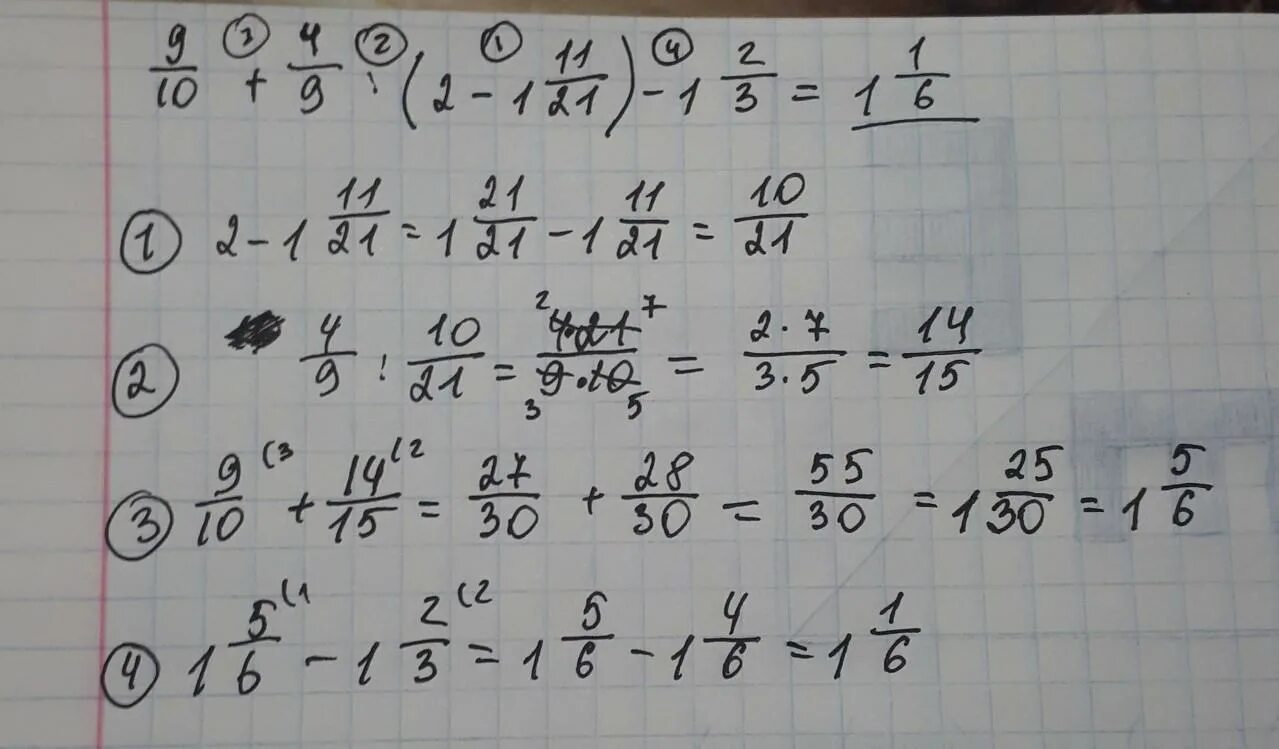 9/10 + 4/9 : (2 - 1 11/21) - 1 2/3 = 1 1/6
① 2 - 1 11/21 = 1 21/21 - 1 11/21 = 10/21
② 4/9 : 10/21 = 4·21/9·10 = 2·7/3·5 = 14/15
③ 9/10 (3 + 14/15 (2 = 27/30 + 28/30 = 55/30 = 1 25/30 = 1 5/6
④ 1 5/6 (1 - 1 2/3 (2 = 1 5/6 - 1 4/6 = 1 1/6